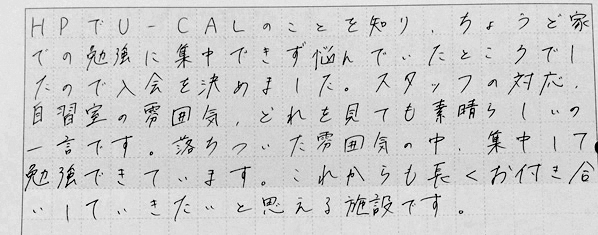 HPでU-CALのことを知り、ちょうど家
での勉強に集中できず悩んでいたところでし
たので入会を決めました。スタッフの対応、
自習室の雰囲気、どれを見ても素晴らしいの
一言です。落ちついた雰囲気の中、集中して
勉強できています。これからも長くお付き合
いしていきたいと思える施設です。